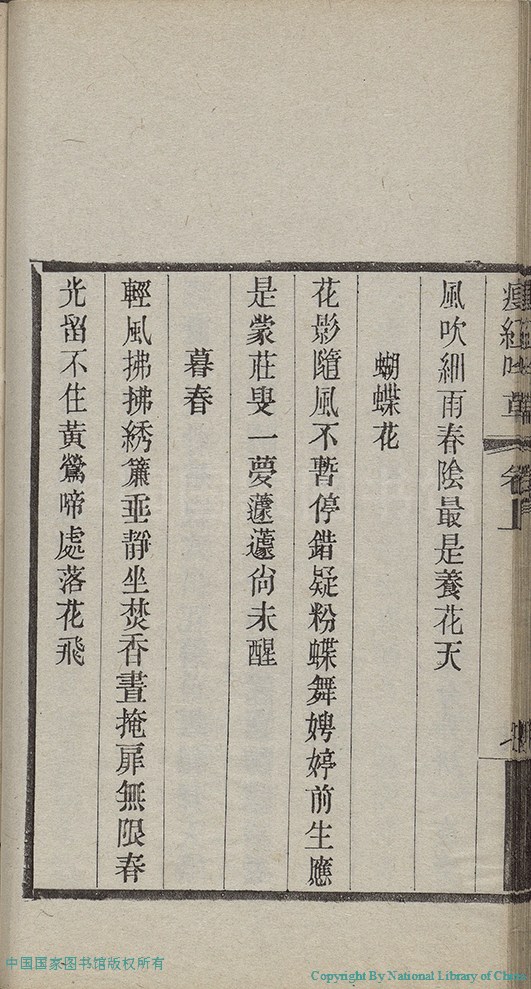 風吹細雨春陰最是養花天
蝴蝶花
花影隨風不暫停錯疑粉蝶舞娉婷前生應
是蒙莊叟一夢蘧蘧尙未醒
暮春
輕風拂拂綉簾垂靜坐焚香晝掩扉無限春
光留不住黃鶯啼處落花飛
中国国家图书馆版权所有
Copyright By National Library of China